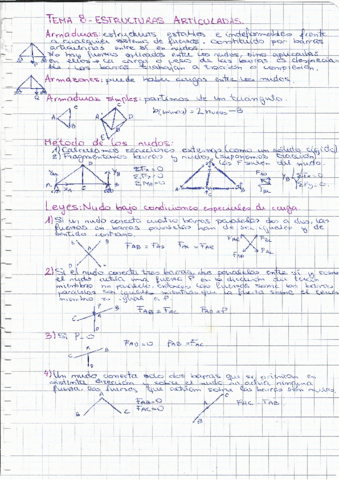 TEMA 8-ESTRUCTURAS ARTICULADAS.
Armaduras: estructuras estables e indeformables frente
a cualquier sistema de fuerzas. Constituido por barras
articuladas entre sí en nudos.
No hay fuerzas aplicadas entre los nudos, sino aplicadas
en ellos → la carga o peso de las barras es despreciable
Las barras trabajan a tracción o compresión.
Armazones: puede haber cargas entre los nudos
Armaduras simples: partimos de un triangulo.
Método de los nudos:
1) Calculamos reacciones externas (como un sólido rígido)
2) Fragmentamos barras y nudos (suponemos tracción)
ΣFx=0
ΣFy=0
Leyes: Nudo bajo condiciones especiales de carga
1) Si un nudo conecta cuatro barras paralelas dos a dos, las
fuerzas en barras paralelas han de ser iguales y de
sentido contrario.
FAB = FAD FAC = FAE
2) Si el nudo conecta tres barras, dos paralelas entre sí y sobre
el nudo actúa una fuerza P en la dirección del tercer
miembro no paralelo, entonces las fuerzas sobre las barras
paralelas son iguales mientras que la fuerza sobre el tercer
miembro es igual a P.
FAB = FAC FAD = P
3) Si P=0
FAD = 0 FAB = FAC
4) Un nudo conecta solo dos barras que se orientan en
distinta dirección y sobre el nudo no actúa ninguna
fuerza, las fuerzas que actúan sobre las barras son nulas.
FAB = 0
FAC = 0
FAC = FAB